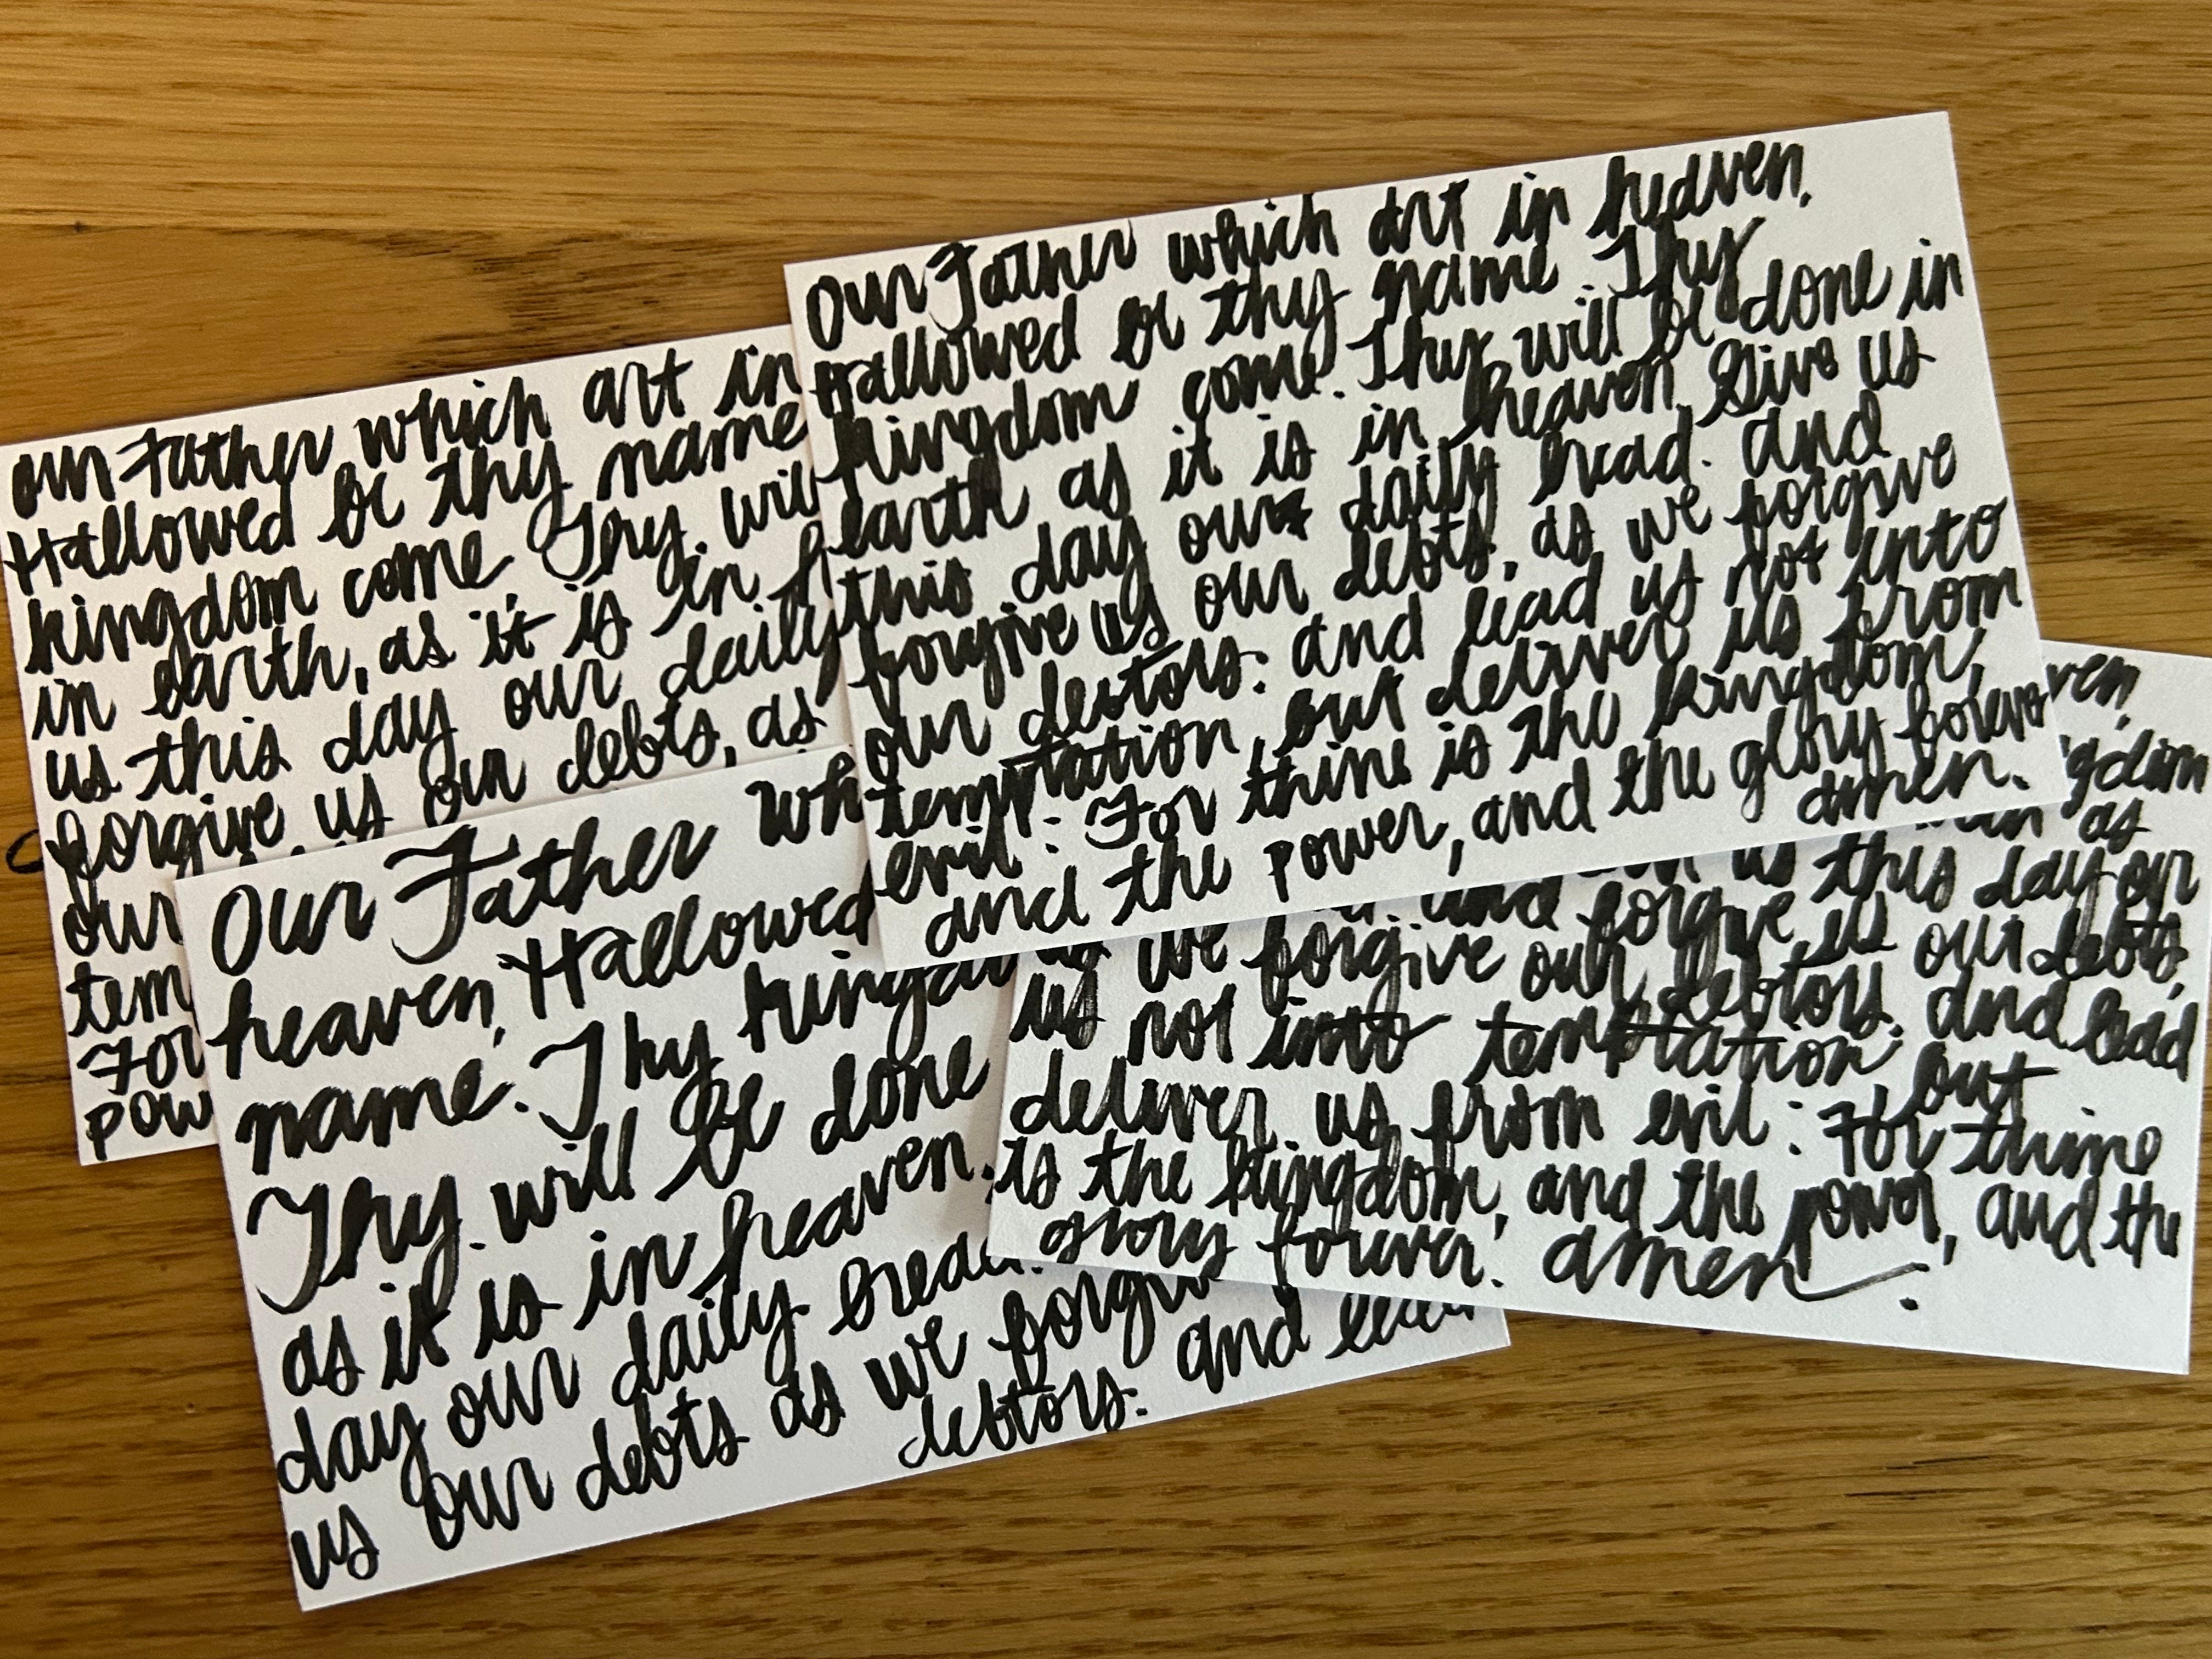 our Father which art in
Hallowed be thy name
kingdom come Thy will
in earth, as it is in
us this day our daily
forgive us our debts, as
our
tem
For
pow
Our Father which art in heaven,
Hallowed be thy name. Thy
kingdom come. Thy will be done in
earth as it is in heaven. Give us
this day our daily bread. And
forgive us our debts, as we forgive
our destors: and lead us not into
temptation, but deliver us from
evil: For thine is the kingdom,
and the power, and the glory forever
amen.
Our Father wh
heaven, Hallowed
name. Thy kingdo
Thy will be done
as it is in heaven.
day our daily bread
us our debts as we forgiv
debtors: and lead
ven,
gdom
as
us this day our
and forgive us our debts,
as we forgive our debtors: and lead
us not into temptation but
deliver us from evil: For thine
is the kingdom, and the power, and the
glory forever. amen.